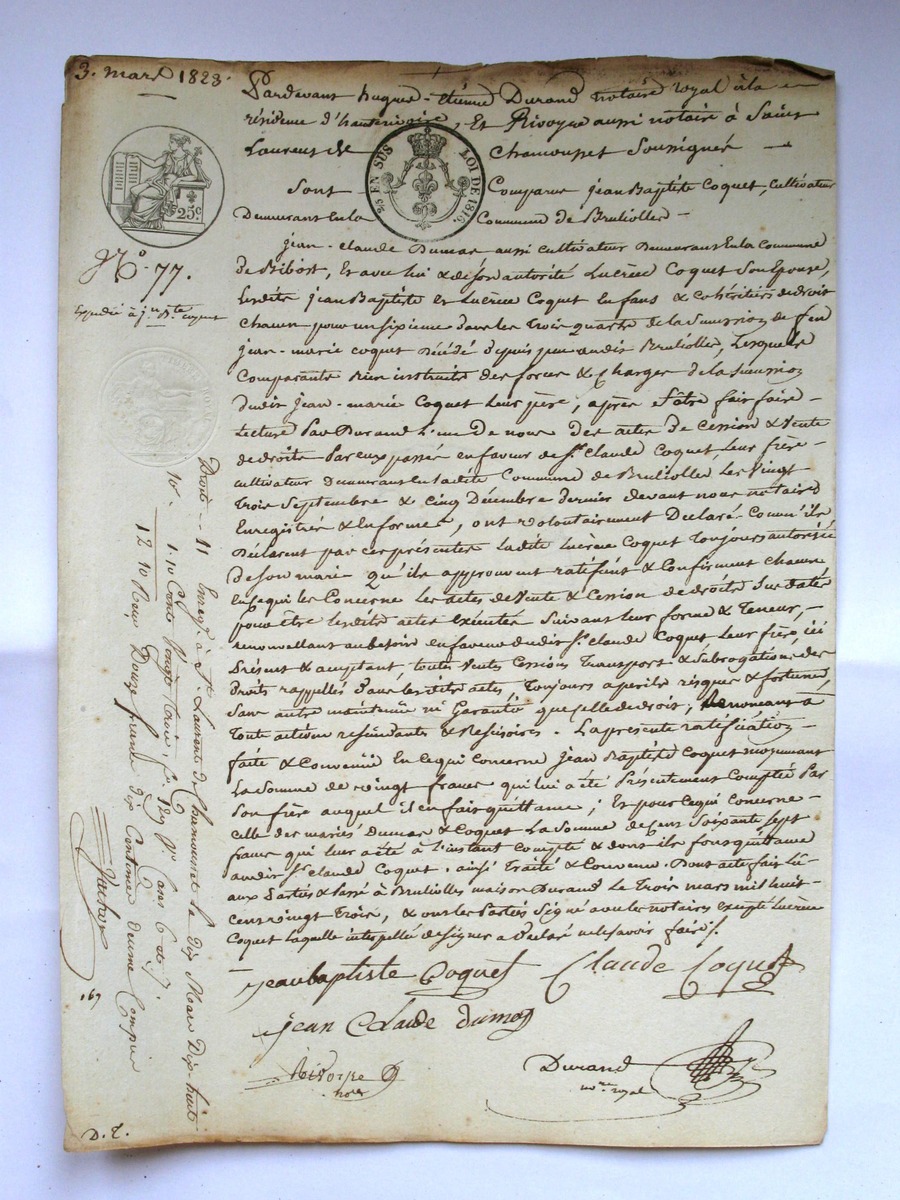 3. mars 1823.
Pardevant hugues-étienne Durand notaire royal à la
résidence d'hauterivoire, Et Rivoyre aussi notaire à Saint
Laurent de Chamousset Soussignés
25 c.
25 c. EN SUS LOI DE 1816.
Sont Comparus jean Baptiste Coquet, cultivateur
Demeurant En la Commune de Brulioller
N.° 77.
Expédié à jn. Bte. coquet
jean-claude Dumas aussi cultivateur Demeurant En la Commune
de Ribost, Et avec lui & de son autorité Lucrèce Coquet Son Epouse,
Lesdits jean Baptiste et Lucrèce Coquet enfans & cohéritiers de droit
chacun pour un sixieme dans les Trois quarts de la Succession de feu
jean-marie coquet décédé depuis peu audit Brulioller, Lesquels
Comparants bien instruits des forces & Charges de la Succession
dudit jean-marie Coquet Leur père, après s'être fait faire
Lecture Par Durand L'un De nous des actes de Cession & Vente
de droits Par eux passés en faveur de Sr. Claude Coquet Leur frère
cultivateur Demeurant en ladite Commune de Brulioller Les Vingt
Trois Septembre & Cinq Décembre dernier devant nous notaires
Enregistrés & En forme, ont volontairement Déclaré Comm'ils
Déclarent par ces présentes Ladite Lucrèce Coquet Toujours autorisée
de Son mari qu'ils approuvent ratifient & Confirment chacun
en ce qui les Concerne Les actes de Vente & Cession de droits Sus datés
pour être lesdits actes Exécutés Suivant Leur forme & Teneur,
renouvellant au besoin en faveur dudit Sr. Claude Coquet Leur frère, ici
Présent & acceptant toutes Ventes Cessions Transports & Subrogations des
Droits rappellés dans lesdits actes, Toujours à perils risques & fortunes,
Sans autre maintenue ni Garantie que celle de droit, Renonçant à
Toute action rescindantes & Rescisoires. La présente ratification
faite & Convenue En ce qui concerne Jean Baptiste Coquet moyennant
La Somme de vingt francs qui lui a été Présentement Comptée Par
Son frère auquel il en fait quittance; Et pour Ce qui Concerne
celle des mariés Dumas & Coquet La Somme de Cent Soixante Sept
francs qui leur a été à l'instant Comptée & dont ils font quittance
audit Sr. claude Coquet. ainsi Traité & Convenu. Dont acte fait Lu
aux Parties & Passé à Brulioller maison Durand Le Trois mars mil huit
cent vingt Trois, & ont les Parties Signé avec les notaires excepté Lucrèce
Coquet Laquelle interpellée de signer a Déclaré ne le savoir faire.
Jean baptiste Coquet Claude Coquet
jean Claude dumas
Rivoyre
nore
Durand
nore. royal
Droits 11
1. 10
12 10
Enregé. à St. Laurent de Chamousset le dix Mars Dix-huit
Cent Vingt Trois, fo. 109 Ro. Cases 6 et 7.
Reçu Douze francs dix Centimes decime Compris
167
D. T.